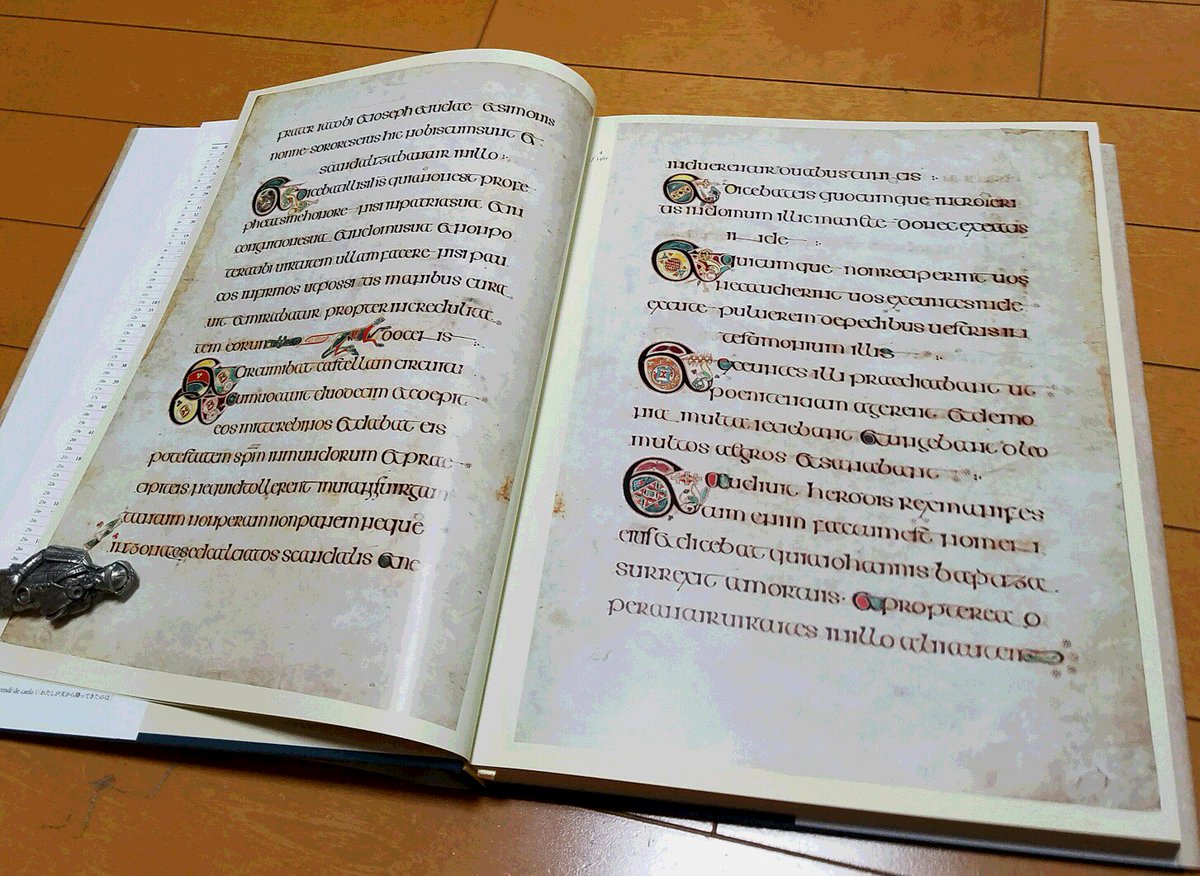 frater iacobi & ioseph & iudae & simonis
nonne sorores eius hic nobiscum sunt &
scandalizabantur in illo
& dicebat illis ihs quia non est profe
pheta sine honore nisi in patria sua & in
cognatione sua & in domu sua & non po
terat ibi uirtutem ullam facere nisi pau
cos infirmos manibus cura
uit & mirabatur propter incredulita
tem eorum docens
& circumibat castella in circuitu
& conuocauit duodecim & coepit
eos mittere binos & dabat eis
potestatem spm inmundorum & prae
cipit eis nequid tollerent in uia nisi uirgam
tantum non peram non panem neque
in zona aes sed calciatos scandalis & ne
induerentur duabus tunicis
& dicebat eis quocumque introieri
tis in domum illic manete donec exeatis
inde
& quicumque non reciperint uos
nec audierint uos exeuntes inde
excutite puluerem de pedibus uestris in
testimonium illis
& exeuntes illi praedicabant ut
poenitentiam agerent & demo
nia multa ieciebant & ungebant oleo
multos aegros & sanabant
& audiuit herodis rex manifes
tum enim factum est nomen
eius & dicebat quia iohannis baptiza
surrexit a mortuis & propterea o
perantur uirtutes in illo alii autem
rendi de caelo（「わたしが天から降ってきたのは」